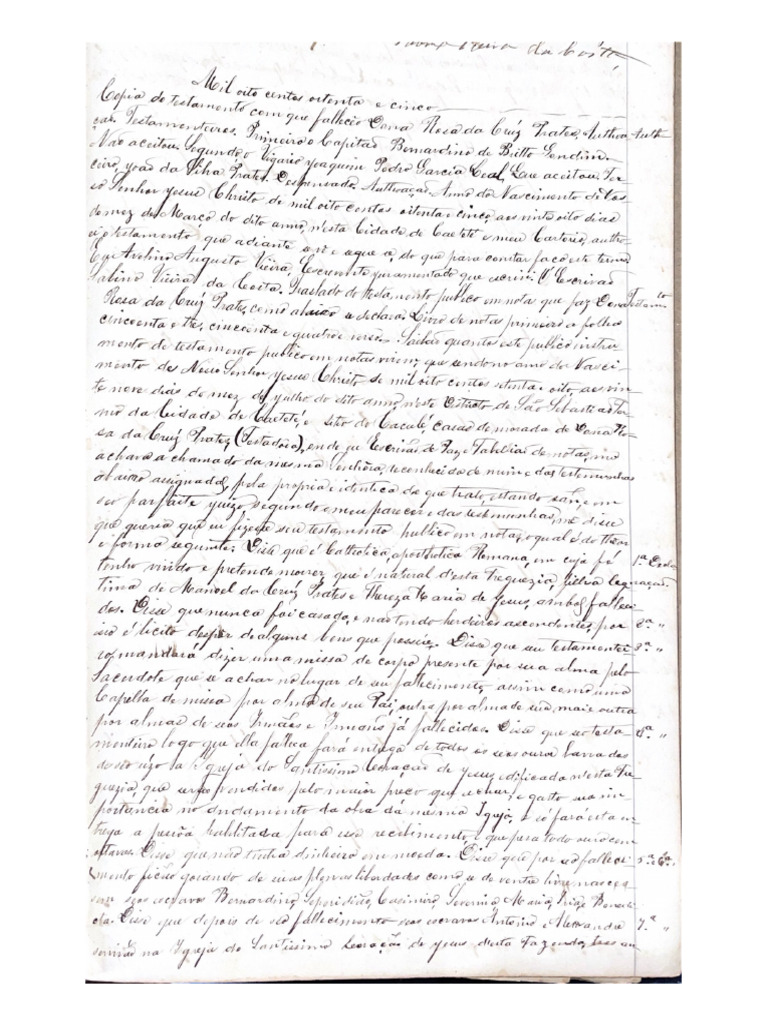 da Costa
Mil oito centos oitenta e cinco
Copia do testamento com que falleceo Dona Rosa da Crúz Prates, Authoa Auth
ção. Testamenteiros. Primeiro o Capitão Bernardino de Britto Gondim.
Não aceitou. Segundo o Vigario Joaquim Pedro Garcia Leal, que aceitou. Ter
ceiro, João da Prates. Despensado. Authuação. Anno do Nascimento de Nos
so Senhor Jesus Christo de mil oito centos oitenta e cinco, aos vinte oito dias
do mez de Março do dito anno, n'esta Cidade de Caeteté e meu Cartorio, autho
ei o testamento que adiante se vê e segue a, do que para constar faço este termo
Eu Avelino Augusto Vieira, Escrevente juramentado que escrevi. O Escrivão
Sabino Vieira da Costa. Traslado do testamento publico em nota que faz Dona Testamto
Rosa da Crúz Prates, como abaixo se declara. Livro de notas primeiro a folhas
cincoenta e tres, cincoenta e quatro e verso. Saibão quantos este publico instru
mento de testamento publico em notas virem, que sendo no anno do Nasci
mento de Nosso Senhor Jesus Christo de mil oito centos setenta e oito, aos vin
te nove dias do mez de julho do dito anno, n'este Distrito de São Sebastião Ter
mo da Cidade de Caeteté, e sitio do Caculé, casas de morada de Dona Ro
sa da Crúz Prates (Testadora), onde eu Escrivão de Paz e Tabelião de notas, me
achava a chamado da mesma Senhora, reconhecida de mim e das testemunhas
abaixo assignadas, pela propria e identica de que trato, estando sãn, e em
seo parfaite juizo segundo o meu parecer e das testemunhas, me disse
que queria que eu fizesse seu testamento publico em notas, o qual é do theor
e forma seguinte: Disse que é Catholica, apostholica Romana, em cuja fé 1ª
tenho vivido e pretende morrer, que é natural d'esta Freguezia, filha legi
tima de Manoel da Crúz Prates e Thereza Maria de Jesus, ambos falleci
dos. Disse que nunca foi casada, e não tendo herdeiros ascendentes, por 2ª. "
isso é licito despor de alguns bens que possúe. Disse que seu testamentei 3ª. "
ro, mandará dizer uma missa de corpo presente por sua alma pelo
Sacerdote que se achar no lugar de seu fallecimento, assim como uma
Capella de missa por alma de seu Pai, outra por alma de sua mai e outra
por almas de seos Irmãos e Irmans já fallecidos. Disse que seo testa 4ª. "
menteiro logo que ella falleça fará entrega de todos os seos ouros lavrados
do seo uzo á Igreja do Santissimo Coração de Jesus, edificada n'esta Fre
guezia, que serão vendidos pelo maior preço que houver, e gasto sua im
portancia no andamento da obra da mesma Igreja, e só fará esta en
trega a pessôa habilitada para esse recebimento, e que para todo
Disse que não tinha dinheiro em moeda. Disse que por seo falleci 5ª. 6ª.
mento ficão gozando de suas plenas liberdades como se de ventre livre nasces
sem seos escravos Bernardino, Casimiro, Severino, Maria,
cta. Disse que depois de seo fallecimento seos escravos Antonio e Alexandre 7ª. "
servirão na Igreja do Santissimo Coração de Jesus desta Fazenda,